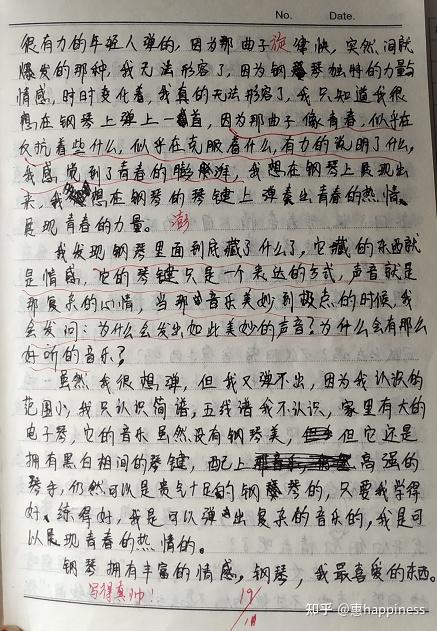 No.   Date.
很有力的年轻人弹的，因为那曲子旋律快，突然间就
爆发的那种，我无法形容了，因为钢琴独特的力量与
情感，时时变化着，我真的无法形容了，我只知道我很
想在钢琴上弹上一首，因为那曲子像青春，似乎在
反抗着些什么，似乎在克服着什么，有力的说明了什么，
我感觉到了青春的膨湃，我想在钢琴上展现出
来，我想在钢琴的琴键上弹奏出青春的热情，
展现青春的力量。 澎
我发现钢琴里面到底藏了什么了，它藏的东西就
是情感，它的琴键只是一个表达的方式，声音就是
那复杂的心情，当那音乐美妙到极点的时候，我
会发问：为什么会发出如此美妙的声音？为什么会有那么
好听的音乐？
虽然我很想弹，但我又弹不出，因为我认识的
范围小，我只认识简谱，五线谱我不认识，家里有大的
电子琴，它的音乐虽然没有钢琴美，但它还是
拥有黑白相间的琴键，配上高强的
琴手，仍然可以是贵气十足的钢琴的，只要我学得
好，练得好，我是可以弹出复杂的音乐的，我是可
以展现青春的热情的。
钢琴拥有丰富的情感，钢琴，我最喜爱的东西。
写得真帅！
知乎 @惠happiness